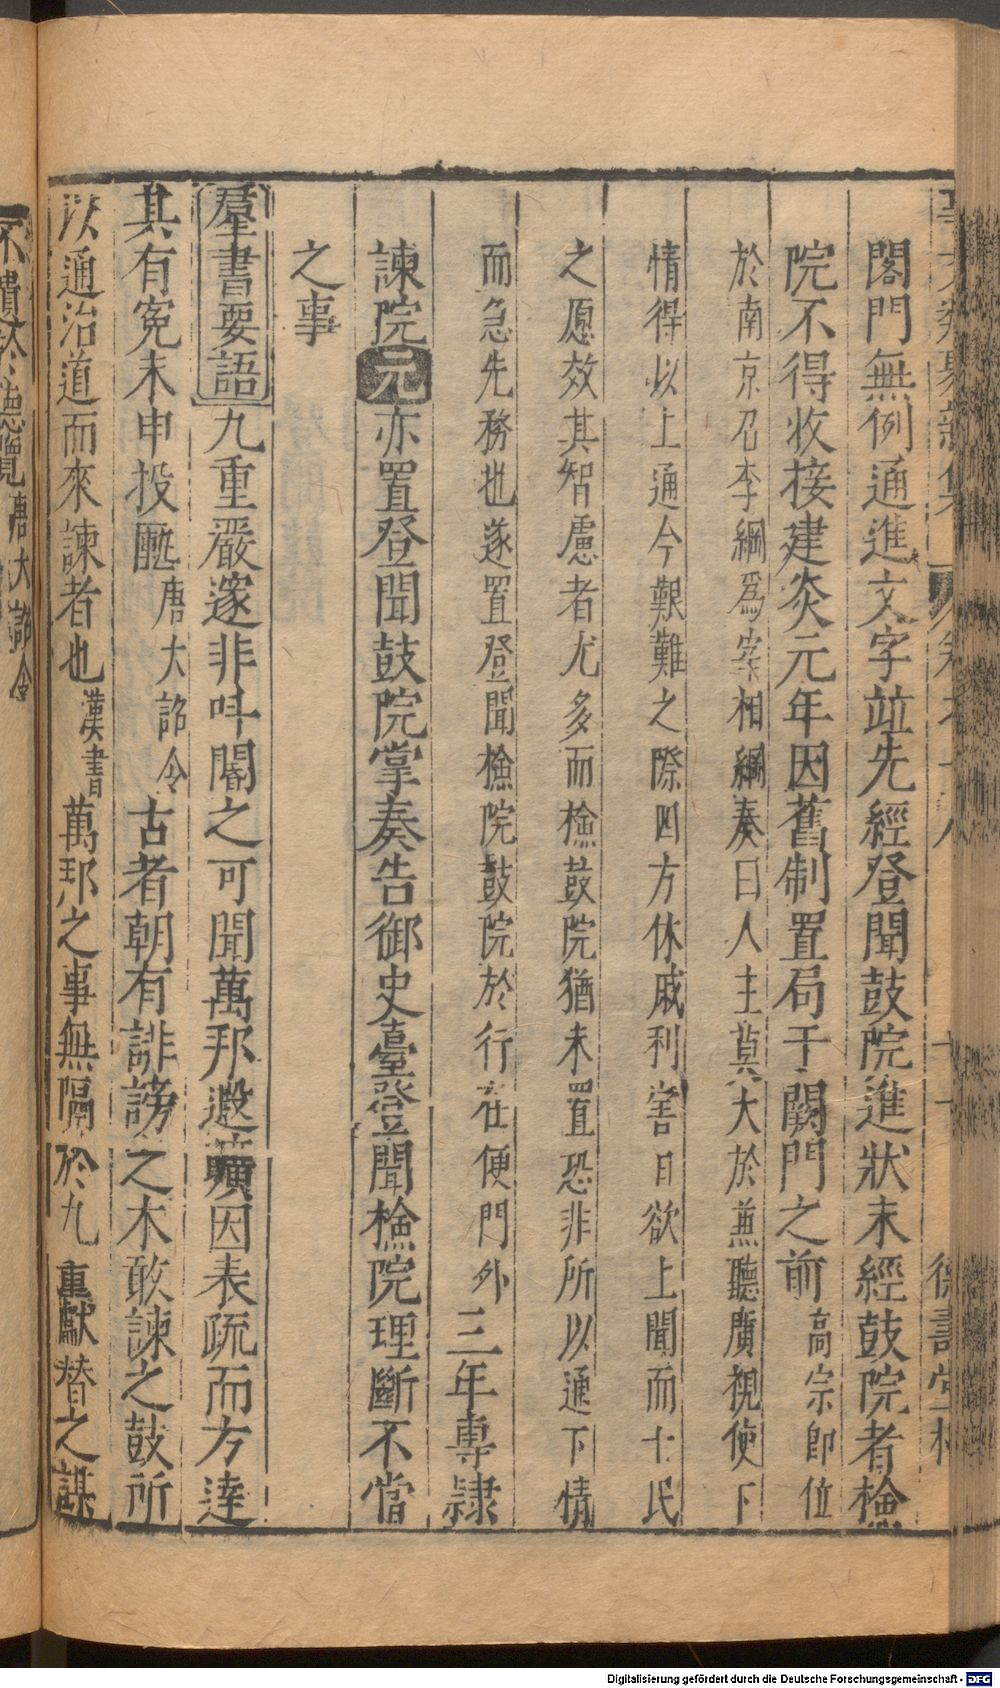 閣門無例通進文字竝先經登聞鼓院進狀未經鼓院者檢
院不得收接建炎元年因舊制置局于闕門之前高宗卽位
於南京召李綱爲宰相綱奏曰人主莫大於兼聽廣視使下
情得以上通今艱難之際四方休戚利害日欲上聞而士民
之愿效其智慮者尤多而檢鼓院猶未置恐非所以通下情
而急先務也遂置登聞檢院鼓院於行在便門外三年專隷
諫院元亦置登聞鼓院掌奏告御史臺登聞檢院理斷不當
之事
羣書要語九重嚴邃非呌閽之可聞萬邦遐曠因表疏而方達
其有冤未申投匭唐大詔令古者朝有誹謗之木敢諫之鼓所
以通治道而來諫者也漢書萬邦之事無隔於九重獻替之謀
不遺於聽覽唐大詔令
Digitalisierung gefördert durch die Deutsche Forschungsgemeinschaft - DFG